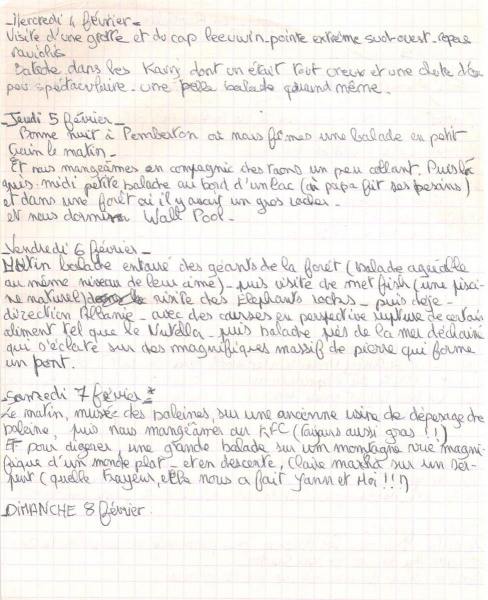 Mercredi 4 février -
Visite d'une grotte et du cap leeuwin - pointe extrème sud-ouest - repas
raviolis
Balade dans les Karri dont un était tout creux et une chute d'eau
peu spéctaculaire - une belle balade quand même.
Jeudi 5 février -
Bonne nuit à Pemberton où nous fîmes une balade en petit
train le matin -
Et nous mangeâmes en compagnie des taons un peu collant. Puis l'a
près-midi petite balade au bord d'un lac (où papa fit ses besoins)
et dans une forêt où il y avait un gros rocher -
et nous dormîmes Wall Pool -
Vendredi 6 février -
Matin balade entouré des géants de la forêt (balade agréable
au même niveau de leur cime) - puis visite de met fish (une pisci
ne naturel) visite des Elephants rochs - puis déje -
direction Albanie - avec des courses en perspective rupture de certain
aliment tel que le Nutella - puis balade près de la mer déchainé
qui s'éclate sur des magnifiques massif de pierre qui forme
un pont.
Samedi 7 février *
Le matin, musée des baleines, sur une ancienne usine de dépesage de
baleine, puis nous mangeâmes au KFC (toujours aussi gras !!)
Et pour digerer une grande balade sur une montagne vue magni-
fique d'un monde plat - et en descente, Claire marcha sur un ser-
pent (quelle frayeur, elle nous a fait Yann et Moi !!!)
DIMANCHE 8 février.